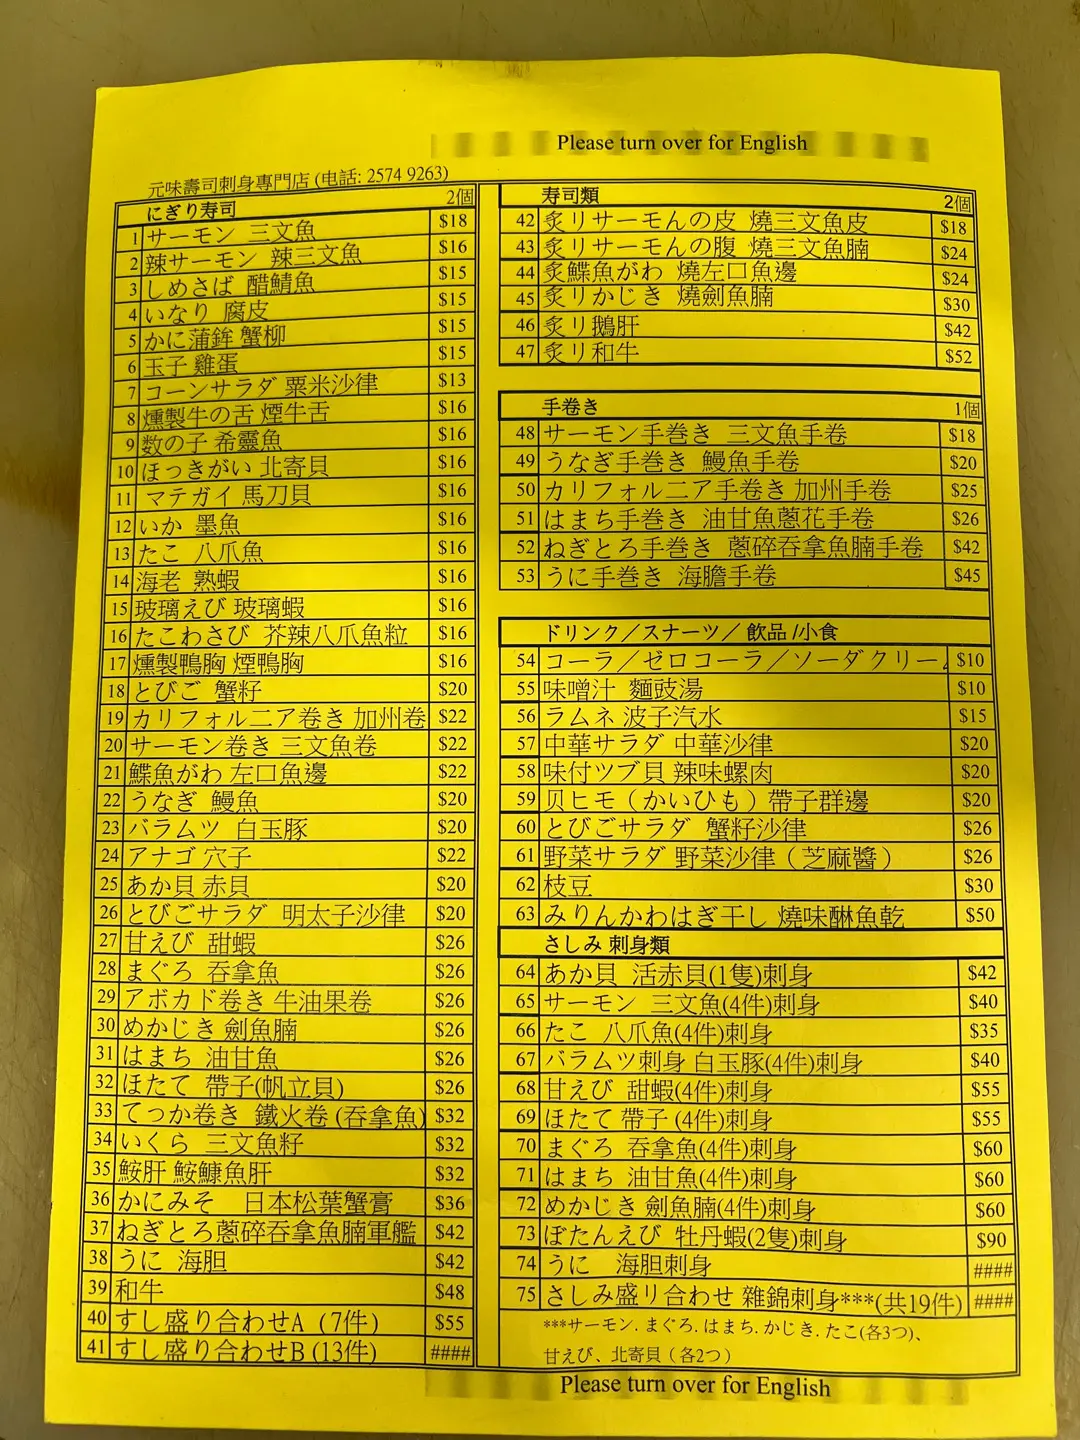 Please turn over for English
元味壽司刺身專門店 (电話: 2574 9263)
にぎり寿司 2個
1 サーモン 三文魚 $18
2 辣サーモン 辣三文魚 $16
3 しめさば 醋鯖魚 $15
4 いなり 腐皮 $15
5 かに蒲鉾 蟹柳 $15
6 玉子 雞蛋 $15
7 コーンサラダ 粟米沙律 $13
8 燻製牛の舌 煙牛舌 $16
9 数の子 希靈魚 $16
10 ほっきがい 北寄貝 $16
11 マテガイ 馬刀貝 $16
12 いか 墨魚 $16
13 たこ 八爪魚 $16
14 海老 熟蝦 $16
15 玻璃えび 玻璃蝦 $16
16 たこわさび 芥辣八爪魚粒 $16
17 燻製鴨胸 煙鴨胸 $16
18 とびご 蟹籽 $20
19 カリフォルニア巻き 加州卷 $22
20 サーモン巻き 三文魚卷 $22
21 鰈魚がわ 左口魚邊 $22
22 うなぎ 鰻魚 $20
23 バラムツ 白玉豚 $20
24 アナゴ 穴子 $22
25 あか貝 赤貝 $20
26 とびごサラダ 明太子沙律 $20
27 甘えび 甜蝦 $26
28 まぐろ 吞拿魚 $26
29 アボカド巻き 牛油果卷 $26
30 めかじき 劍魚腩 $26
31 はまち 油甘魚 $26
32 ほたて 帶子(帆立貝) $26
33 てっか巻き 鐵火卷 (吞拿魚) $32
34 いくら 三文魚籽 $32
35 鮟肝 鮟鱇魚肝 $32
36 かにみそ 日本松葉蟹膏 $36
37 ねぎとろ蔥碎吞拿魚腩軍艦 $42
38 うに 海胆 $42
39 和牛 $48
40 すし盛り合わせA (7件) $55
41 すし盛り合わせB (13件) ####
寿司類 2個
42 炙リサーモんの皮 燒三文魚皮 $18
43 炙リサーモんの腹 燒三文魚腩 $24
44 炙鰈魚がわ 燒左口魚邊 $24
45 炙リかじき 燒劍魚腩 $30
46 炙リ鵝肝 $42
47 炙リ和牛 $52
手巻き 1個
48 サーモン手巻き 三文魚手卷 $18
49 うなぎ手巻き 鰻魚手卷 $20
50 カリフォルニア手巻き 加州手卷 $25
51 はまち手巻き 油甘魚蔥花手卷 $26
52 ねぎとろ手巻き 蔥碎吞拿魚腩手卷 $42
53 うに手巻き 海膽手卷 $45
ドリンク／スナーツ／ 飲品 /小食
54 コーラ／ゼロコーラ／ソーダクリーム $10
55 味噌汁 麵豉湯 $10
56 ラムネ 波子汽水 $15
57 中華サラダ 中華沙律 $20
58 味付ツブ貝 辣味螺肉 $20
59 贝ヒモ（かいひも）帶子群邊 $20
60 とびごサラダ 蟹籽沙律 $26
61 野菜サラダ 野菜沙律（芝麻醬） $26
62 枝豆 $30
63 みりんかわはぎ干し 燒味醂魚乾 $50
さしみ 刺身類
64 あか貝 活赤貝(1隻)刺身 $42
65 サーモン 三文魚(4件)刺身 $40
66 たこ 八爪魚(4件)刺身 $35
67 バラムツ刺身 白玉豚(4件)刺身 $40
68 甘えび 甜蝦(4件)刺身 $55
69 ほたて 帶子 (4件)刺身 $55
70 まぐろ 吞拿魚(4件)刺身 $60
71 はまち 油甘魚(4件)刺身 $60
72 めかじき 劍魚腩(4件)刺身 $60
73 ぼたんえび 牡丹蝦(2隻)刺身 $90
74 うに 海胆刺身 ####
75 さしみ盛り合わせ 雜錦刺身***(共19件) ####
***サーモン. まぐろ. はまち. かじき. たこ(各3つ)、
甘えび、北寄貝（各2つ）
Please turn over for English